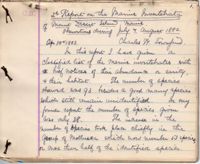 2d Report on the Marine Invertebrata
of Mount Desert Island, Maine
Obtained during July & August 1882
Charles H.
In this report I have given a
classified list of the Marine invertebrates with
a few notices of their abundance or rarity,
& their habitat. The number of species
showed was 93 besides a good many species
which still remain unidentified. In my
former report the number of species given
was only 38. The increase in the
number of species took place chiefly in the
group of Molluscs which now number 53 species
or more than half of the identified species